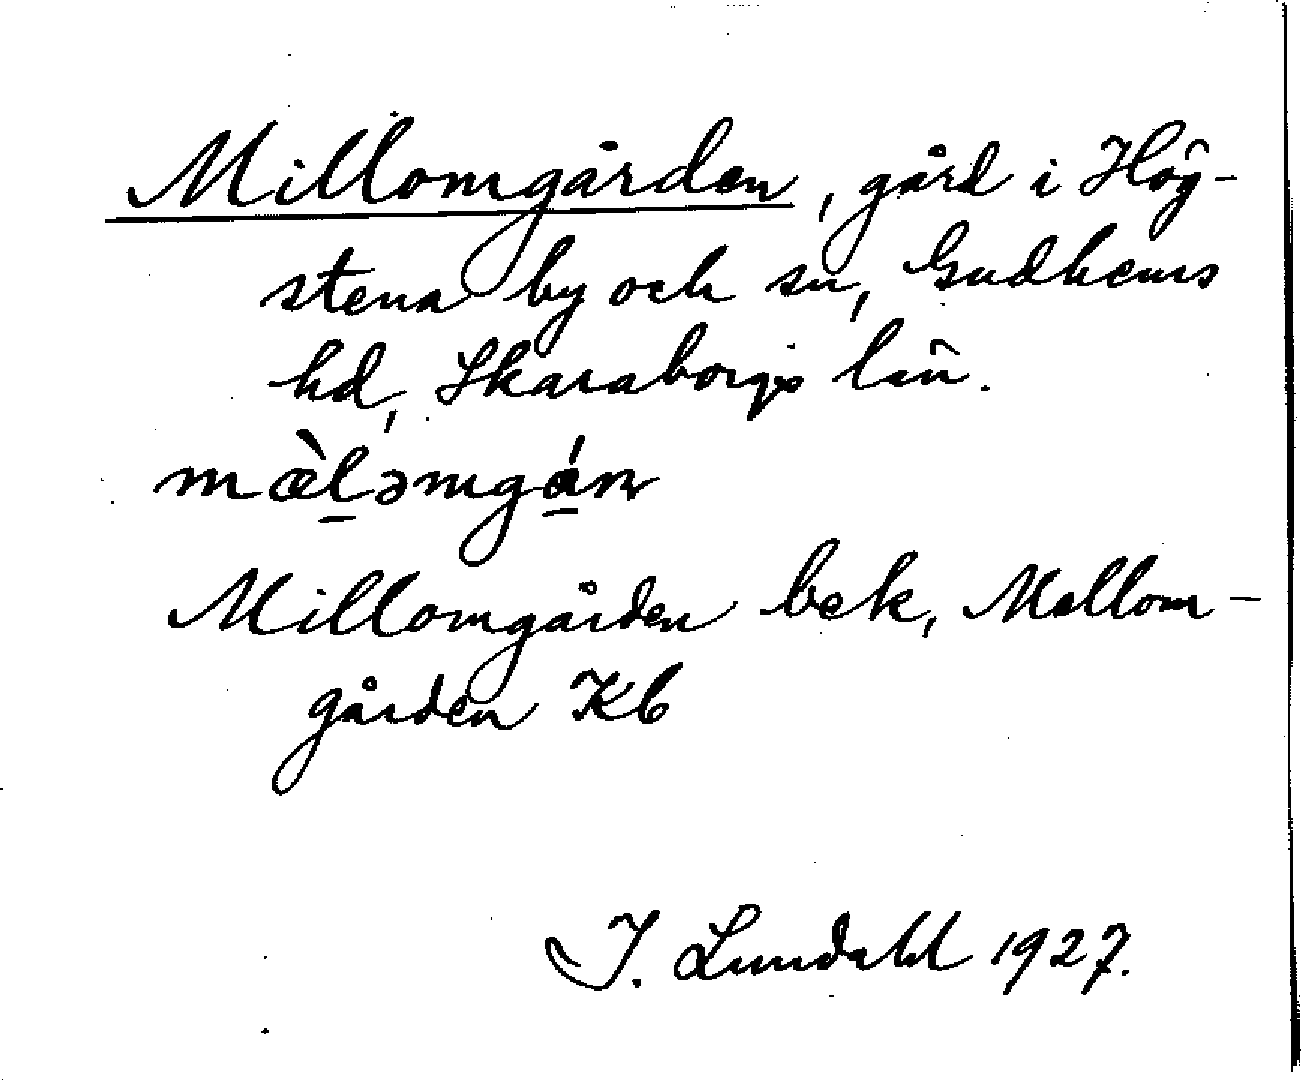 Millomgården, gård i Hög-
stena by och sn, Gudhems
hd, Skaraborgs län.
mæ̀l̠əmgá̠n
Millomgården bek, Mellom-
gården Kb
I. Lundahl 1927.